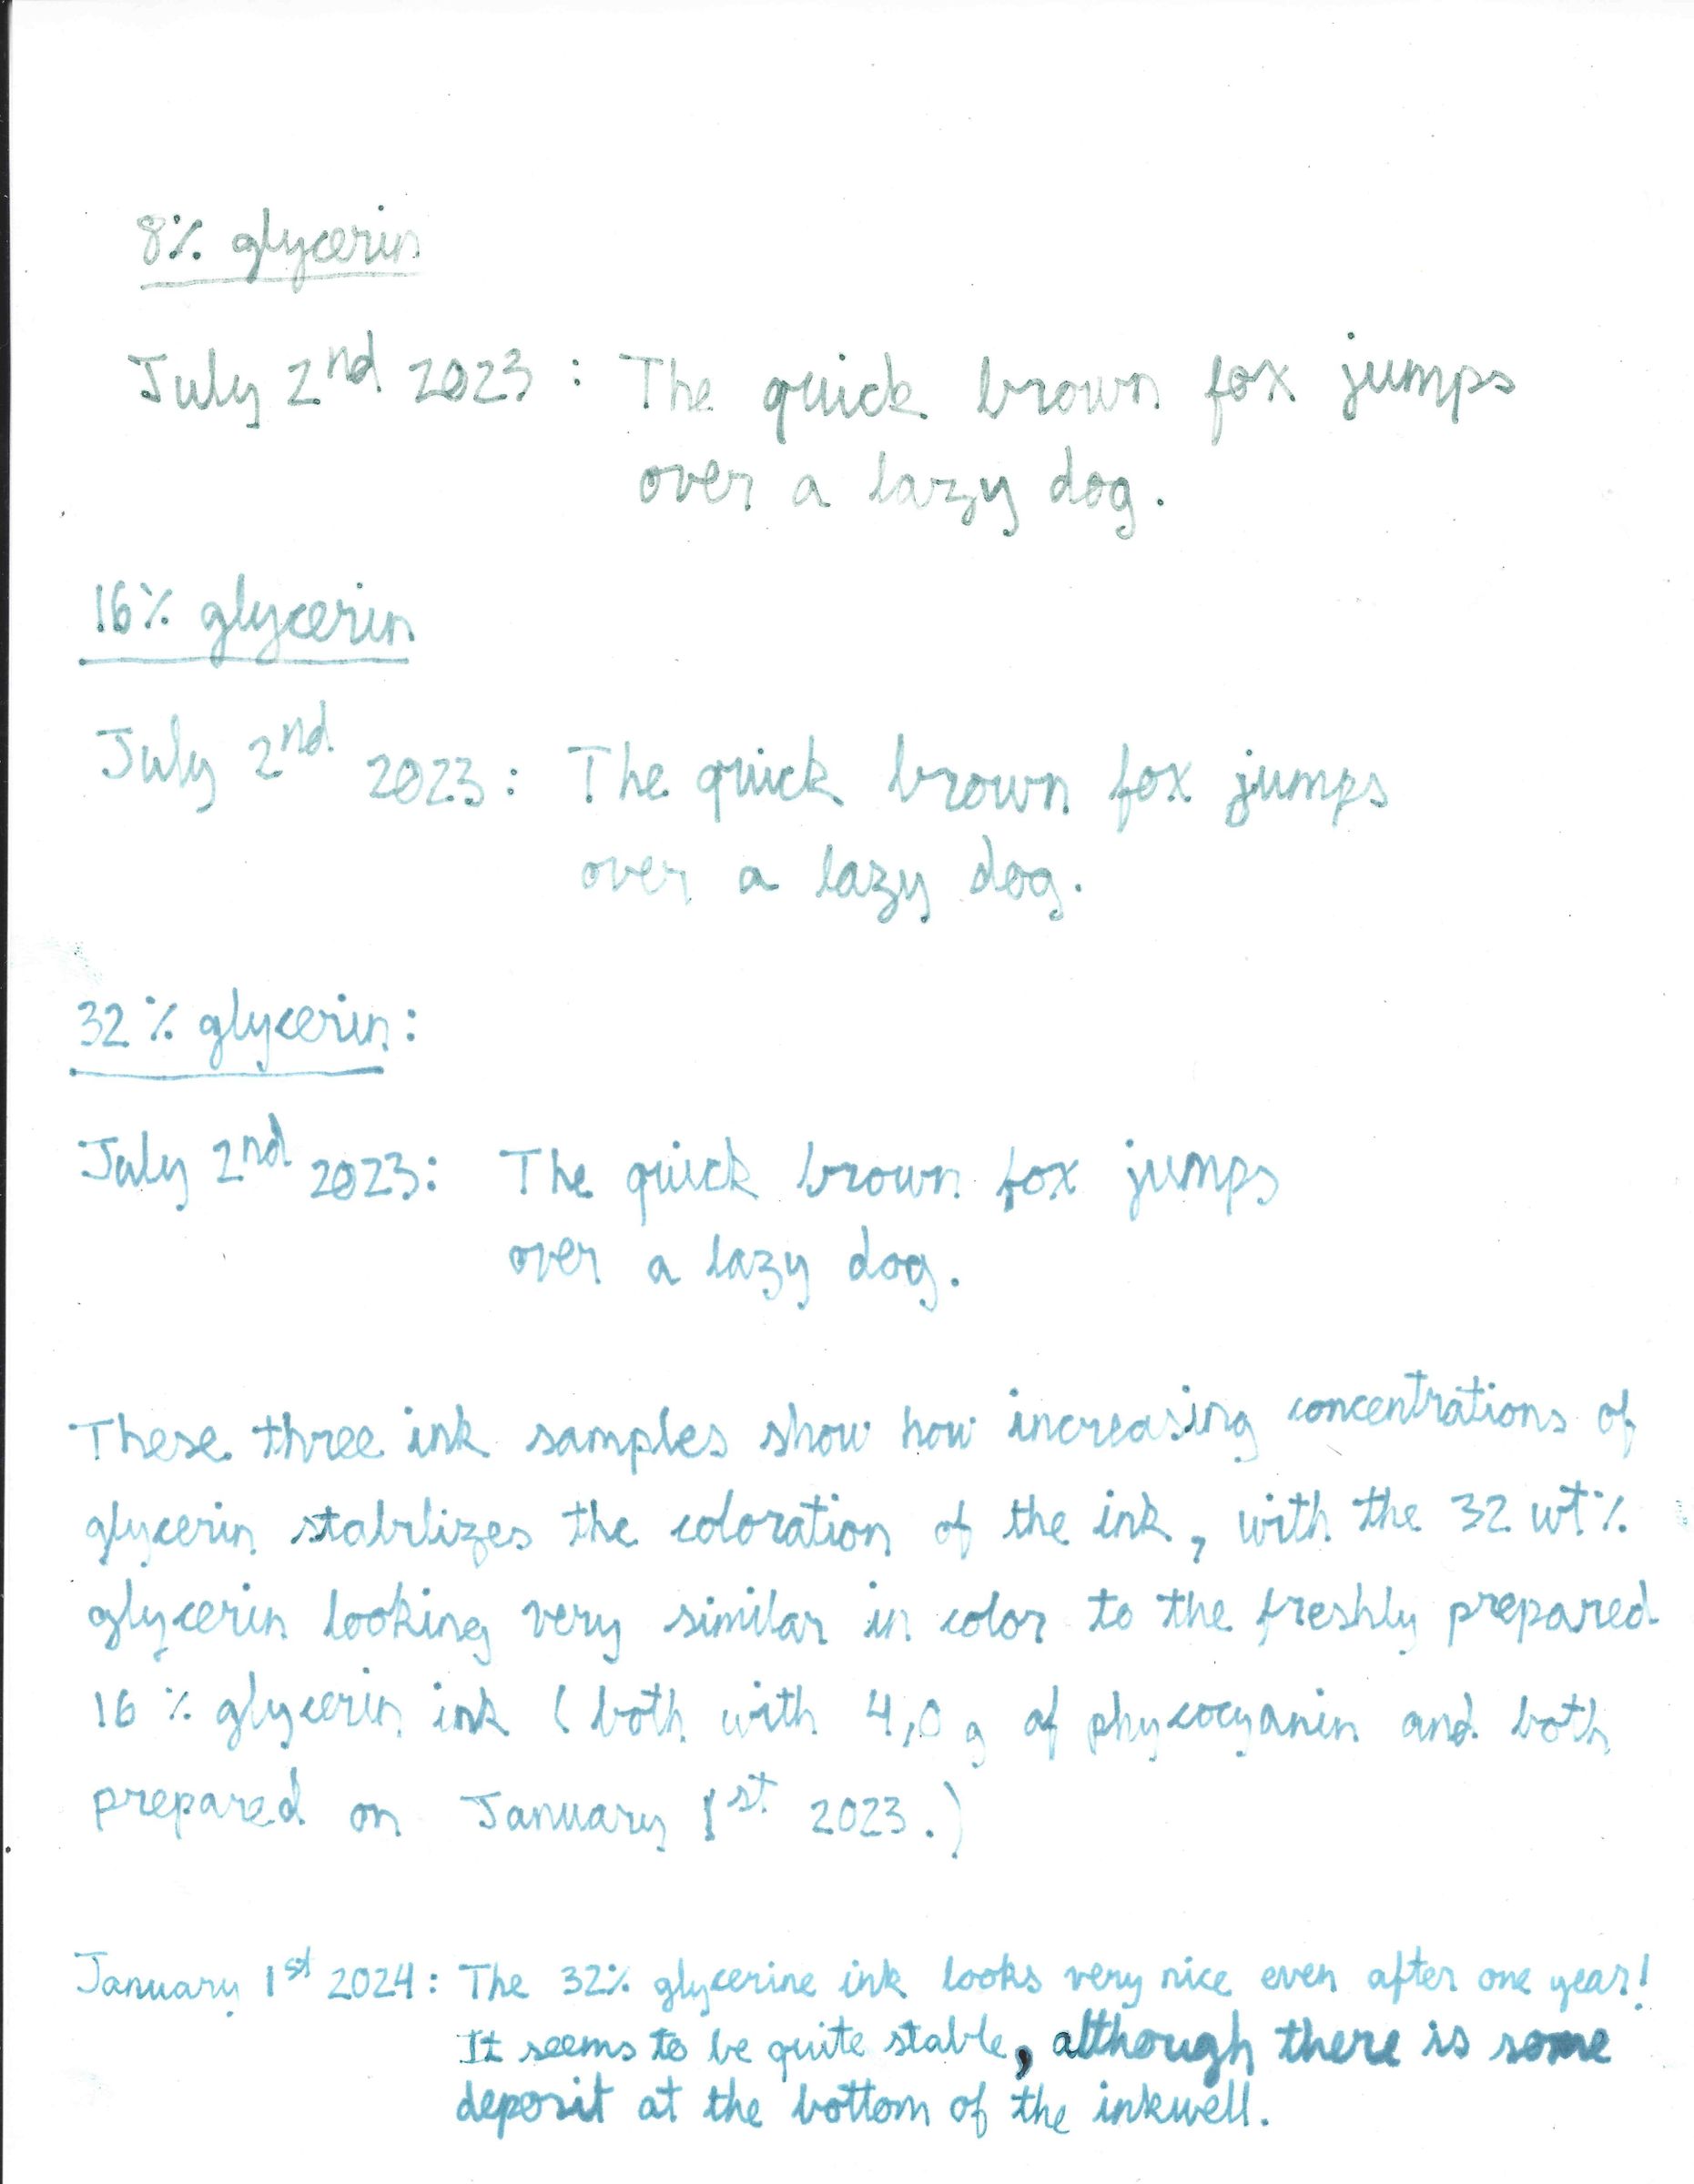 8% glycerin
July 2nd 2023 : The quick brown fox jumps
over a lazy dog.
16% glycerin
July 2nd 2023: The quick brown fox jumps
over a lazy dog.
32% glycerin:
July 2nd 2023: The quick brown fox jumps
over a lazy dog.
These three ink samples show how increasing concentrations of
glycerin stabilizes the coloration of the ink, with the 32 wt%
glycerin looking very similar in color to the freshly prepared
16% glycerin ink (both with 4,0 g of phycocyanin and both
prepared on January 1st 2023.)
January 1st 2024: The 32% glycerine ink looks very nice even after one year!
It seems to be quite stable, although there is some
deposit at the bottom of the inkwell.